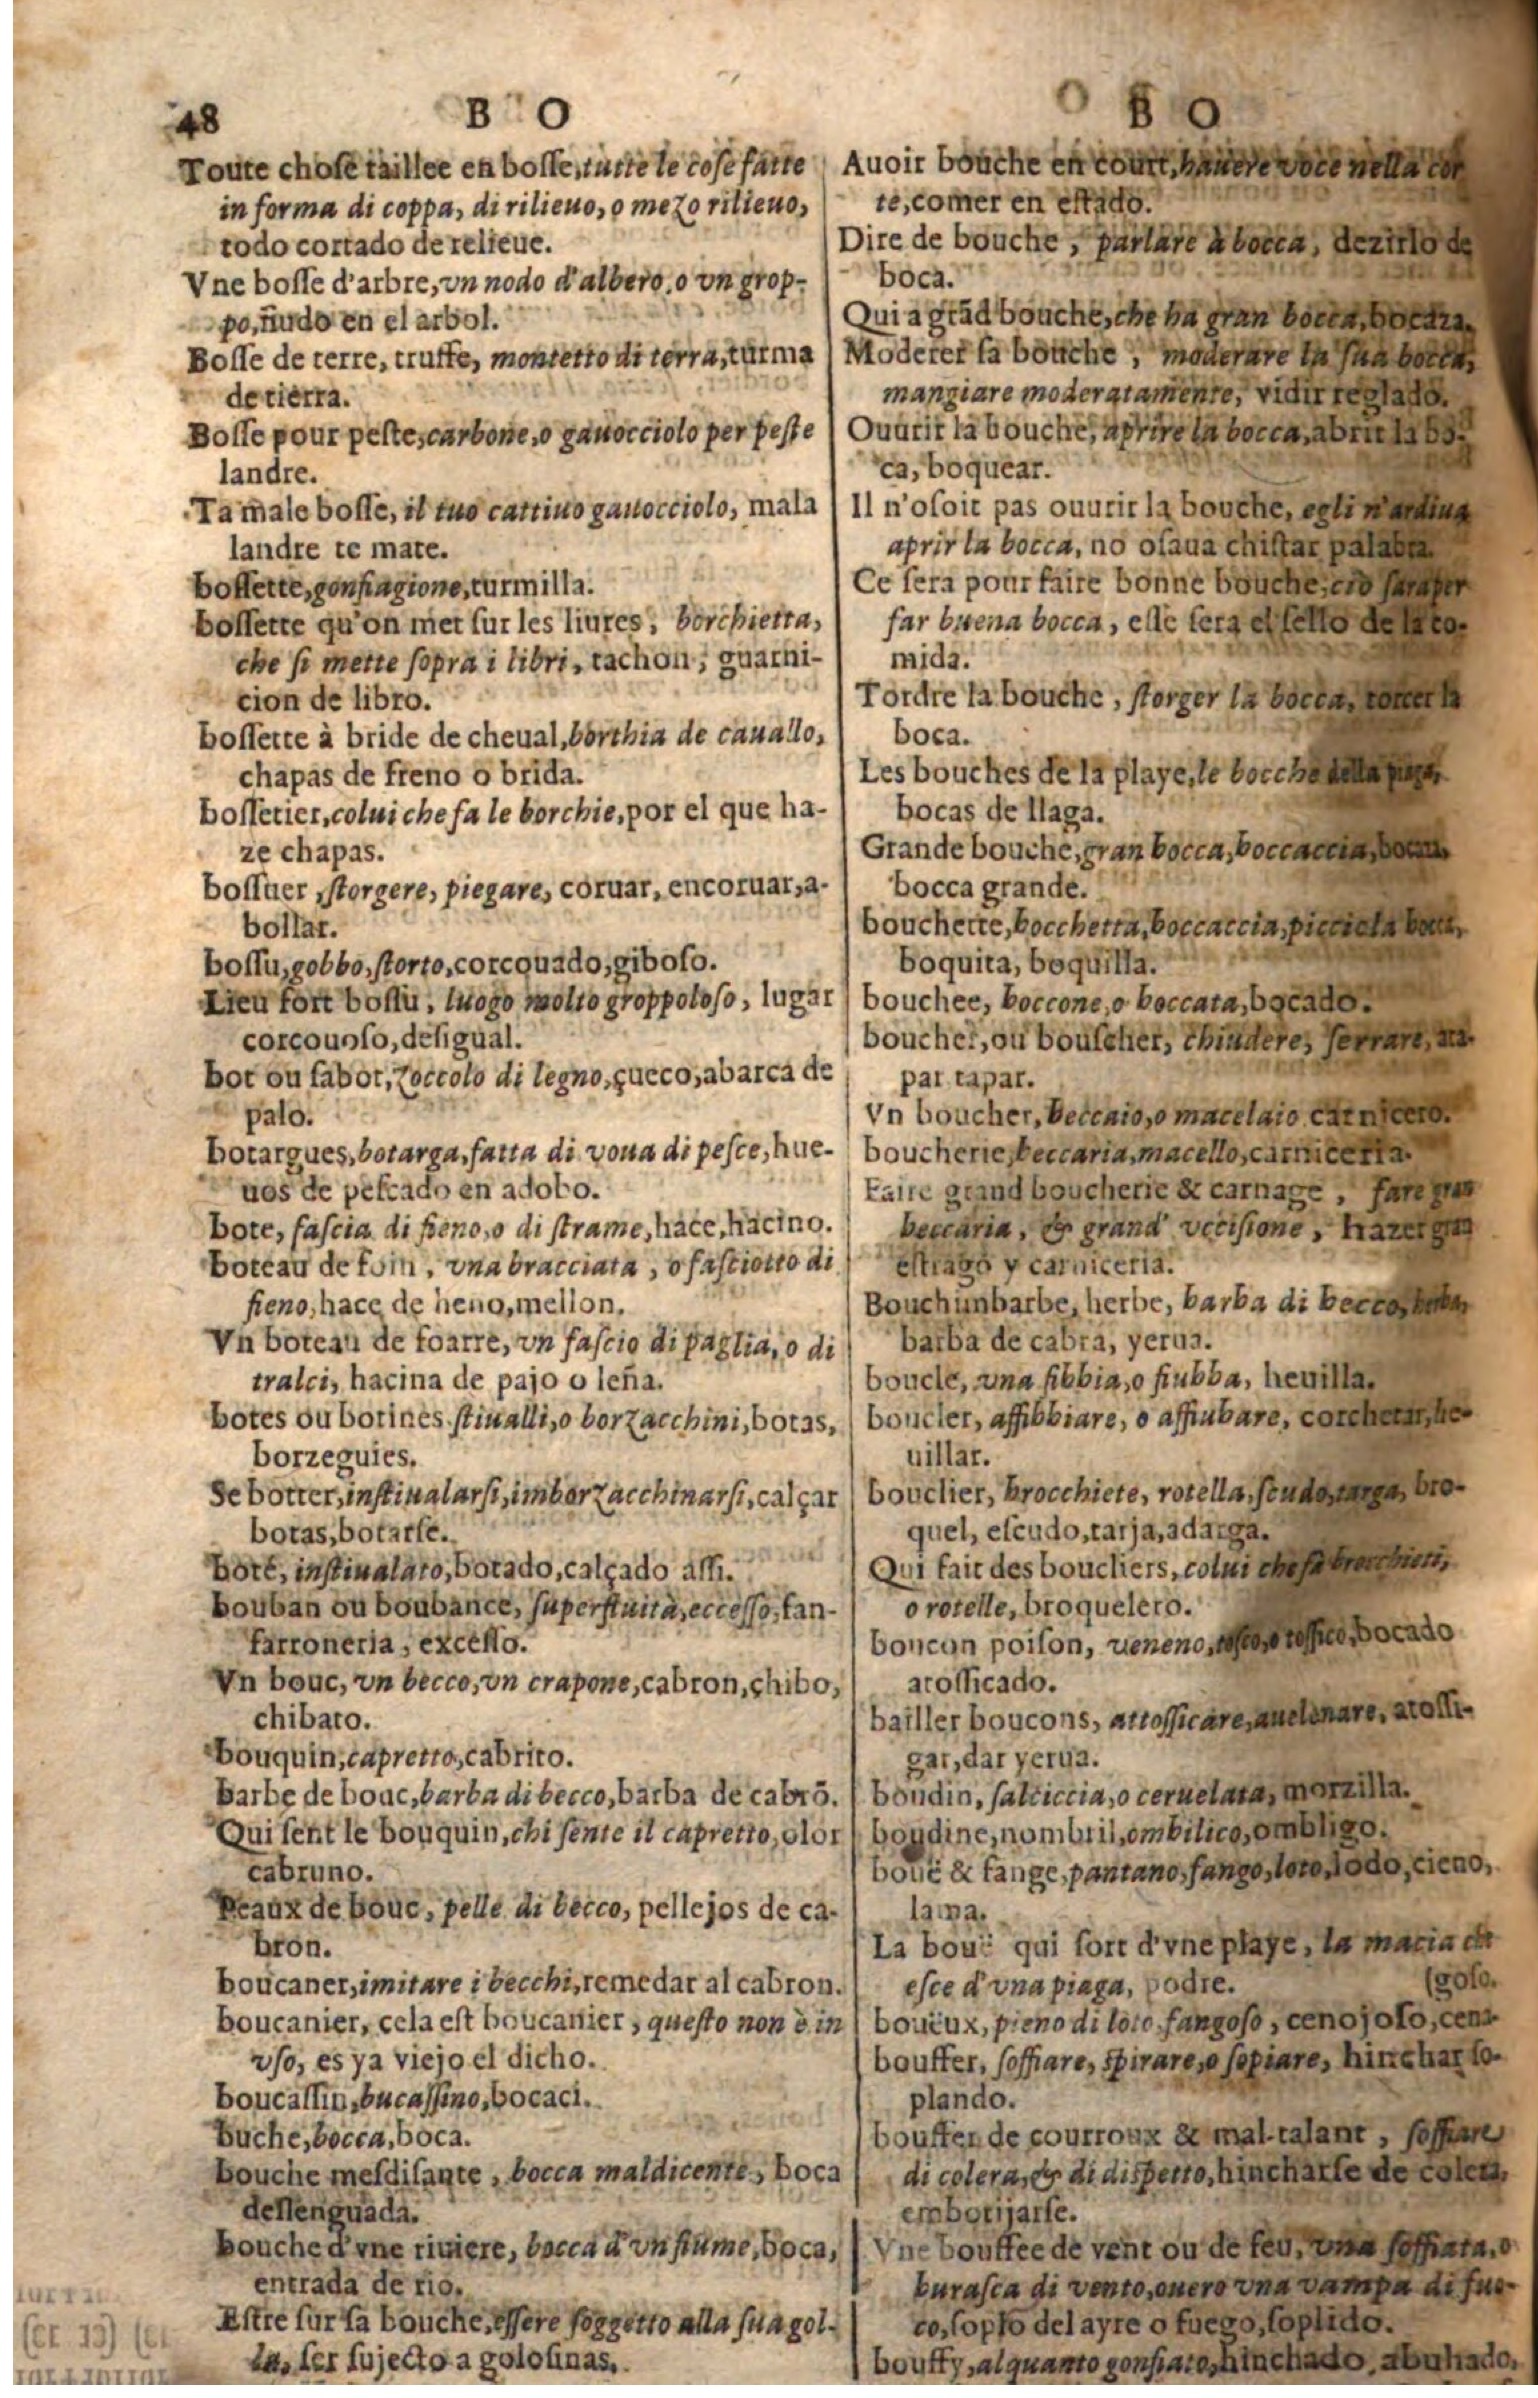 48 B O
Toute chose taillee en bosse, tutte le cose fatte
in forma di coppa, di rilieuo, o mezo rilieuo,
todo cortado de relieue.
Vne bosse d'arbre, vn nodo d'albero, o vn grop-
po, ñudo en el arbol.
Bosse de terre, truffe, montetto di terra, turma
de tierra.
Bosse pour peste, carbone, o gauocciolo per peste
landre.
Ta male bosse, il tuo cattiuo gauocciolo, mala
landre te mate.
bossette, gonfiagione, turmilla.
bossette qu'on met sur les liures, borchietta,
che si mette sopra i libri, tachon, guarni-
cion de libro.
bossette à bride de cheual, borthia de cauallo,
chapas de freno o brida.
bossetier, colui che fa le borchie, por el que ha-
ze chapas.
bossuer, storgere, piegare, coruar, encoruar, a-
bollar.
bossu, gobbo, storto, corcouado, giboso.
Lieu fort bossu, luogo molto groppoloso, lugar
corcouoso, desigual.
bot ou sabot, zoccolo di legno, çueco, abarca de
palo.
botargues, botarga, fatta di voua di pesce, hue-
uos de pescado en adobo.
bote, fascia di fieno, o di strame, hace, hacino.
boteau de foin, vna bracciata, o fasciotto di
fieno, hace de heno, mellon.
Vn boteau de foarre, vn fascio di paglia, o di
tralci, hacina de pajo o leña.
botes ou botines stiualli, o borzacchini, botas,
borzeguies.
Se botter, instiualarsi, imborzacchinarsi, calçar
botas, botarse.
boté, instiualato, botado, calçado assi.
bouban ou boubance, superfluità, eccesso, fan-
farroneria, excesso.
Vn bouc, vn becco, vn crapone, cabron, chibo,
chibato.
bouquin, capretto, cabrito.
barbe de bouc, barba di becco, barba de cabrõ.
Qui sent le bouquin, chi sente il capretto, olor
cabruno.
Peaux de bouc, pelle di becco, pellejos de ca-
bron.
boucaner, imitare i becchi, remedar al cabron.
boucanier, cela est boucanier, questo non è in
vso, es ya viejo el dicho.
boucassin, bucassino, bocaci.
buche, bocca, boca.
bouche mesdisante, bocca maldicente, boca
deslenguada.
bouche d'vne riuiere, bocca d'vn fiume, boca,
entrada de rio.
Estre sur sa bouche, essere soggetto alla sua gol-
la, ser sujecto a golosinas.
B O
Auoir bouche en court, hauere voce nella cor
te, comer en estado.
Dire de bouche, parlare à bocca, dezirlo de
boca.
Qui a grãd bouche, che ha gran bocca, bocaza.
Moderer sa bouche, moderare la sua bocca,
mangiare moderatamente, vidir reglado.
Ouurir la bouche, aprire la bocca, abrir la bo-
ca, boquear.
Il n'osoit pas ouurir la bouche, egli n'ardiua
aprir la bocca, no osaua chistar palabra.
Ce sera pour faire bonne bouche, ciò sara per
far buena bocca, este sera el sello de la co-
mida.
Tordre la bouche, storger la bocca, torcer la
boca.
Les bouches de la playe, le bocche della piaga,
bocas de llaga.
Grande bouche, gran bocca, boccaccia,
bocca grande.
bouchette, bocchetta, boccaccia, picciola bocca,
boquita, boquilla.
bouchee, boccone, o boccata, bocado.
boucher, ou bouscher, chiudere, serrare, ata-
par tapar.
Vn boucher, beccaio, o macelaio carnicero.
boucherie, beccaria, macello, carniceria.
Faire grand boucherie & carnage, fare gran
beccaria, & grand' vccisione, hazer gran
estrago y carniceria.
Bouchunbarbe, herbe, barba di becco, herba,
barba de cabra, yerua.
boucle, vna fibbia, o fiubba, heuilla.
boucler, affibbiare, o affiubare, corchetar, he-
uillar.
bouclier, brocchiete, rotella, scudo, targa, bro-
quel, escudo, tarja, adarga.
Qui fait des boucliers, colui che fa brocchieri,
o rotelle, broquelero.
boucon poison, veneno, tosco, o tossico, bocado
atossicado.
bailler boucons, attossicare, auelenare, atossi-
gar, dar yerua.
boudin, salciccia, o ceruelata, morzilla.
boudine, nombril, ombilico, ombligo.
bouë & fange, pantano, fango, loto, lodo, cieno,
lama.
La bouë qui sort d'vne playe, la marcia che
esce d'vna piaga, podre. (goso.
bouëux, pieno di loto fangoso, cenojoso, cena-
bouffer, soffiare, spirare, o sopiare, hinchar so-
plando.
bouffer de courroux & mal-talant, soffiare
di colera, & di dispetto, hincharse de colera,
embotijarse.
Vne bouffee de vent ou de feu, vna soffiata, o
burasca di vento, ouero vna vampa di fuo-
co, soplo del ayre o fuego, soplido.
bouffy, alquanto gonfiato, hinchado, abuhado,